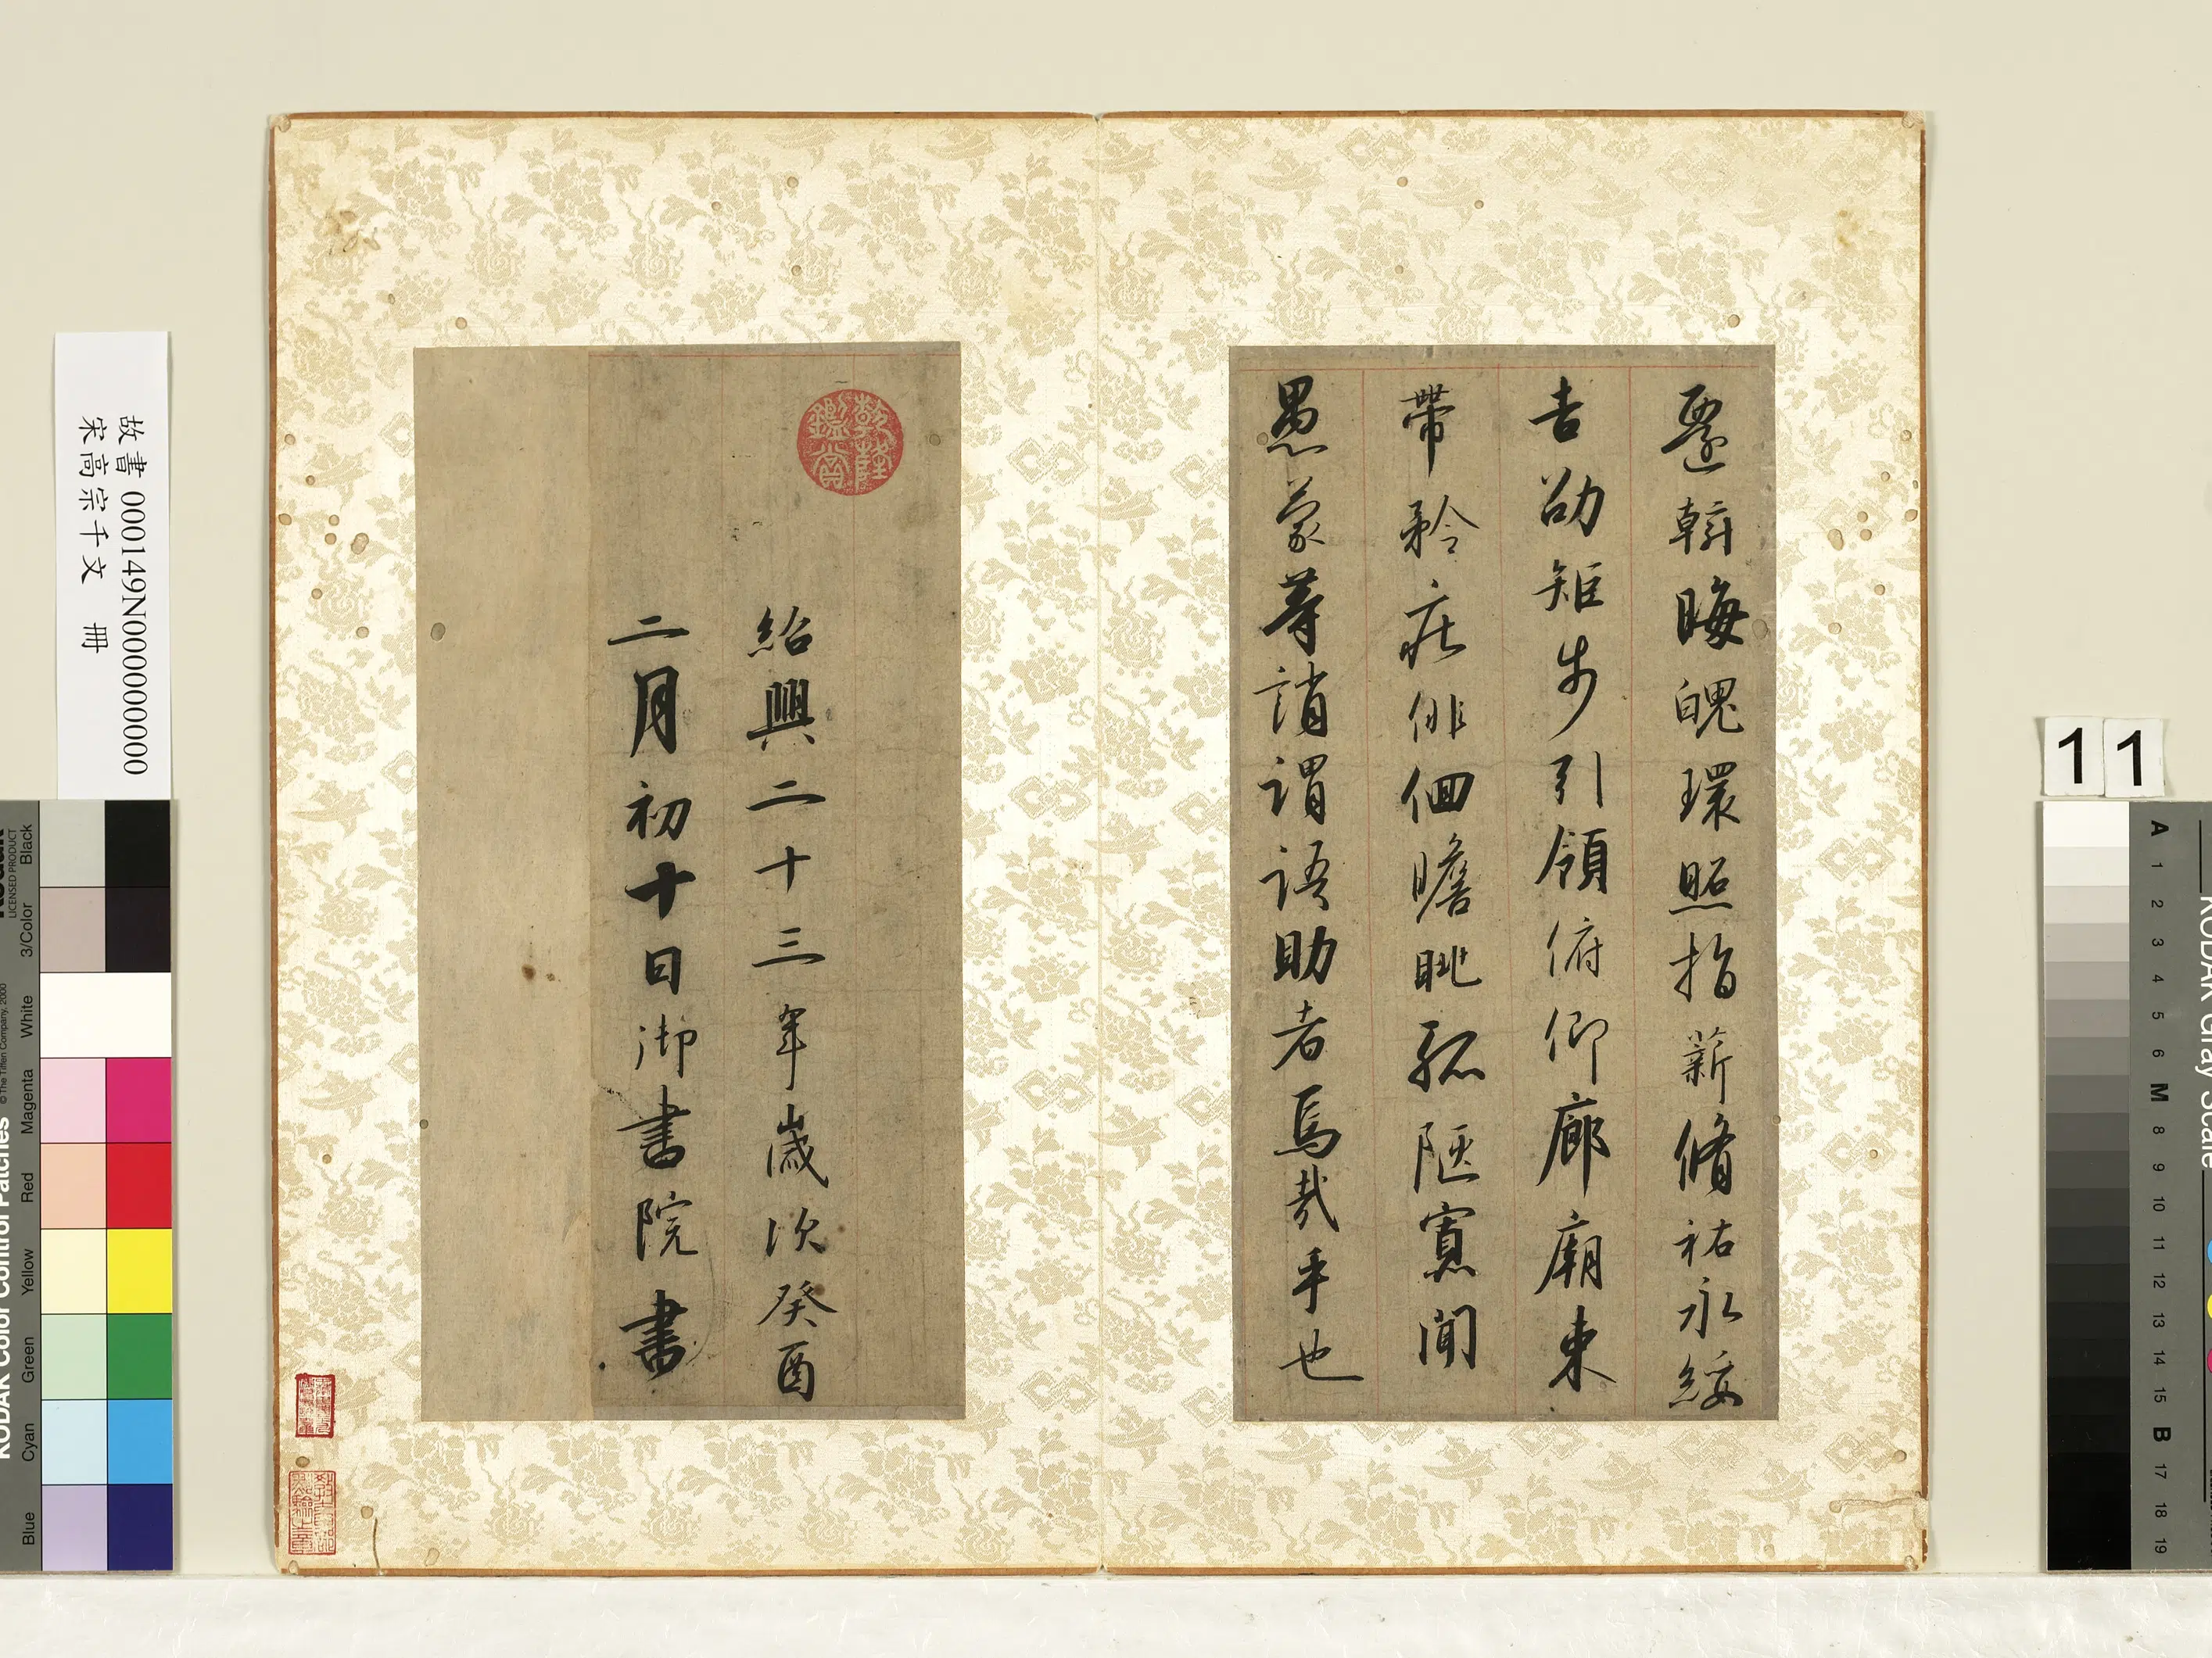 遷斡晦魄環照指薪脩祐永綏
吉劭矩步引領俯仰廊廟束
帶矜莊俳佪瞻眺孤陋寡聞
愚蒙等誚謂語助者焉哉乎也
乾隆
鑑賞
紹興二十三年歲次癸酉
二月初十日御書院書
故書 000149N000000000
宋高宗千文 冊
11
KODAK Color Control Patches
© The Tiffen Company, 2000
Kodak
LICENSED PRODUCT
Blue
Cyan
Green
Yellow
Red
Magenta
White
3/Color
Black
KODAK Gray Scale
A 1 2 3 4 5 6 M 8 9 10 11 12 13 14 15 B 17 18 19